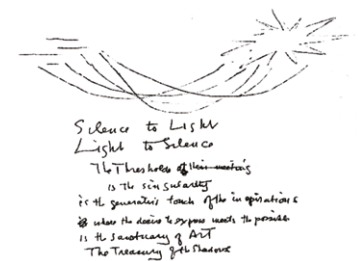 Silence to Light
Light to Silence
The Threshold of their meeting
is the singularity
is the generative touch of the inspirations
is where the desire to express meets the possible
is the Sanctuary of Art
The Treasury of the Shadows